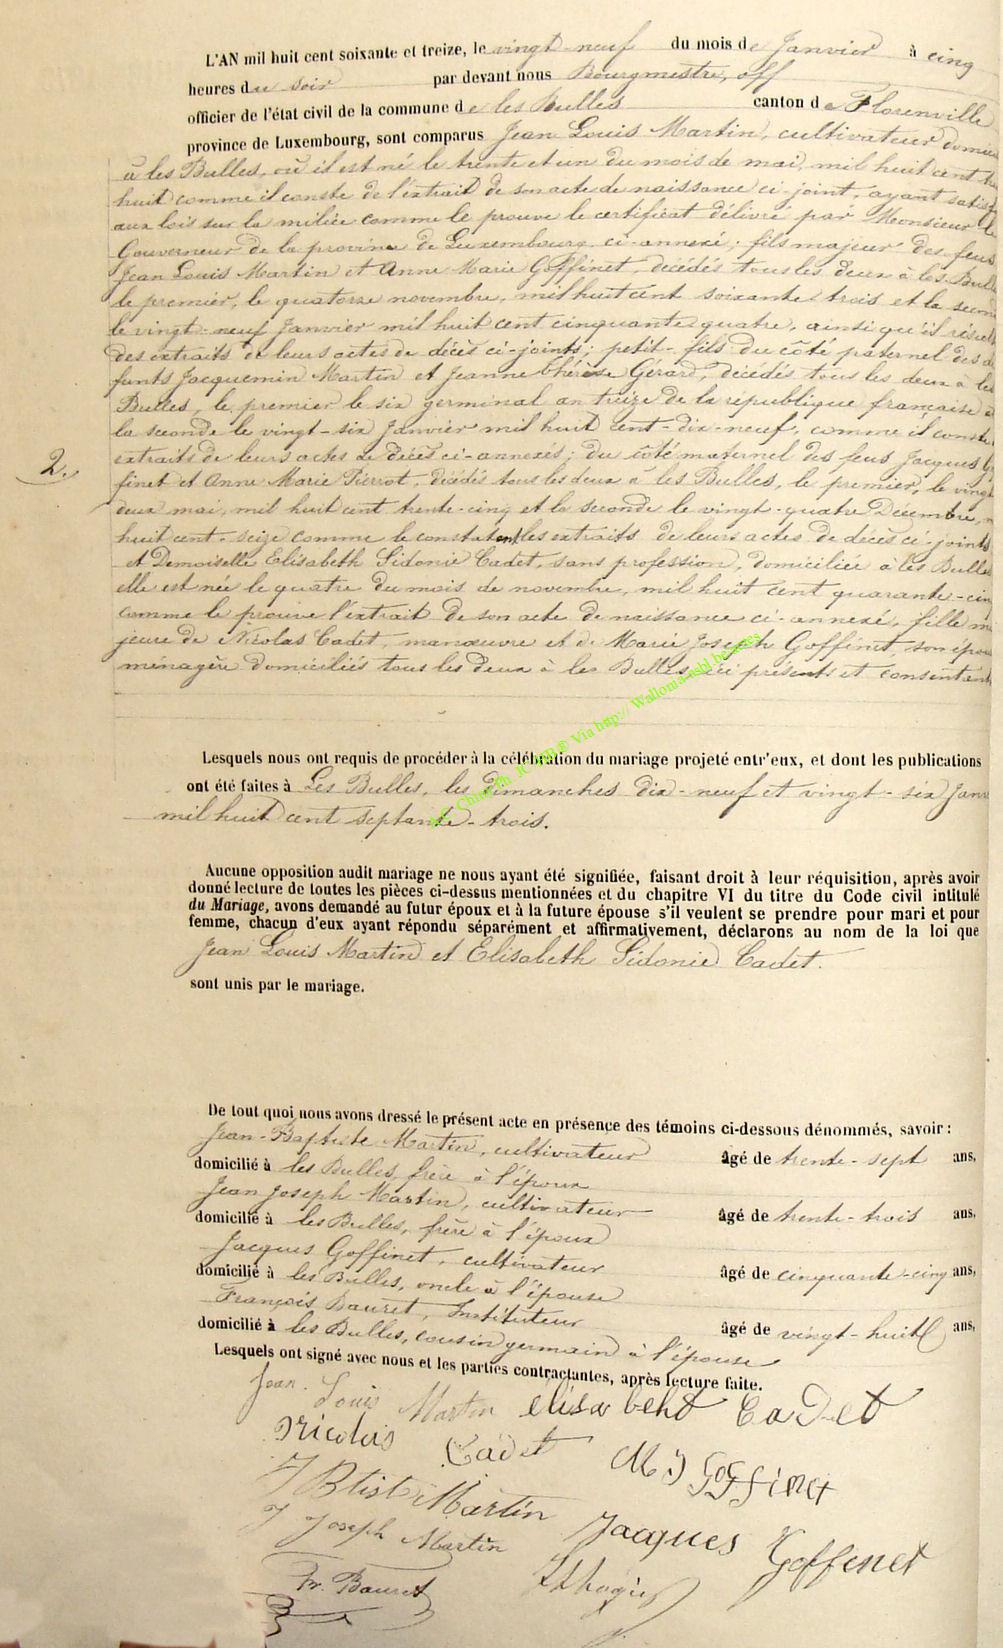 L'AN mil huit cent soixante et treize, le vingt-neuf du mois de Janvier à cinq
heures du soir par devant nous Bourgmestre, off
officier de l'état civil de la commune de les Bulles canton de Florenville
province de Luxembourg, sont comparus Jean Louis Martin, cultivateur domici
à les Bulles, où il est né le trente et un du mois de mai, mil huit cent tre
huit comme il conste de l'extrait de son acte de naissance ci-joint, ayant satisf
aux lois sur la milice comme le prouve le certificat délivré par Monsieur le
Gouverneur de la province de Luxembourg ci-annexé; fils majeur des feus
Jean Louis Martin et Anne Marie Goffinet, décédés tous les deux à les Bull
le premier, le quatorze novembre, mil huit cent soixante trois et la secon
le vingt-neuf Janvier mil huit cent cinquante quatre, ainsi qu'il résul
des extraits de leurs actes de décès ci-joints; petit-fils du côté paternel des d
funts Jacquemin Martin et Jeanne thérèse Gérard, décédés tous les deux à les
Bulles, le premier le six germinal an treize de la republique française e
la seconde le vingt-six Janvier mil huit cent-dix-neuf, comme il conste
extraits de leurs actes de décès ci-annexés; du côté maternel des feus Jacques G
2.
finet et Anne Marie Pierrot, décédés tous les deux à les Bulles, le premier, le vingt
deux mai, mil huit cent trente-cinq et la seconde le vingt-quatre Décembre, m
huit cent-seize comme le constatent les extraits de leurs actes de décès ci-joints
et Demoiselle Elisabeth Sidonie Cadet, sans profession, domiciliée à les Bulles
elle est née le quatre du mois de novembre, mil huit cent quarante-cin
comme le prouve l'extrait de son acte de naissance ci-annexé, fille ma
jeure de Nicolas Cadet, manœuvre et de Marie Joseph Goffinet, son épou
ménagère domiciliés tous les deux à les Bulles, ici présents et consentant
Via http:// Wallonia
Lesquels nous ont requis de procéder à la célébration du mariage projeté entr'eux, et dont les publications
ont été faites à Les Bulles, les dimanches dix-neuf et vingt-six Janv
mil huit cent septante-trois.
Aucune opposition audit mariage ne nous ayant été signifiée, faisant droit à leur réquisition, après avoir
donné lecture de toutes les pièces ci-dessus mentionnées et du chapitre VI du titre du Code civil intitulé
du Mariage, avons demandé au futur époux et à la future épouse s'il veulent se prendre pour mari et pour
femme, chacun d'eux ayant répondu séparément et affirmativement, déclarons au nom de la loi que
Jean Louis Martin et Elisabeth Sidonie Cadet.
sont unis par le mariage.
De tout quoi nous avons dressé le présent acte en présence des témoins ci-dessous dénommés, savoir :
Jean-Baptiste Martin, cultivateur âgé de trente-sept ans,
domicilié à les Bulles, frère à l'époux
Jean Joseph Martin, cultivateur
domicilié à les Bulles, frère à l'époux âgé de trente-trois ans,
Jacques Goffinet, cultivateur
domicilié à les Bulles, oncle à l'épouse âgé de cinquante-cinq ans,
François Bauret, Instituteur
domicilié à les Bulles, cousin germain à l'épouse âgé de vingt-huit ans,
Lesquels ont signé avec nous et les parties contractantes, après lecture faite.
Jean Louis Martin élisabeht Cadet
Nicolas Cadet M J Goffinet
J Btiste Martin
J Joseph Martin Jacques Goffinet
Fr. Bauret